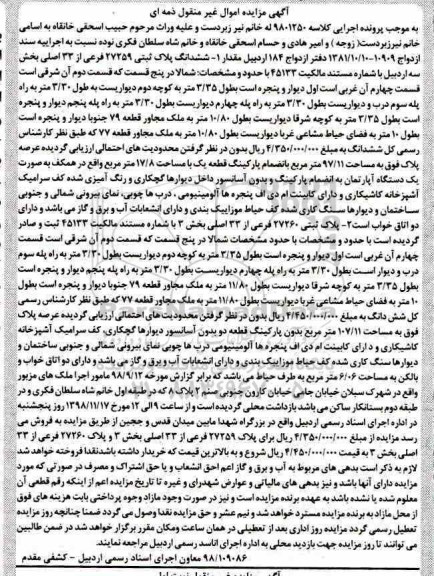 آگهی مزایده اموال غیر منقول ذمه ای
به موجب پرونده اجرایی کلاسه ۹۸۰۱۲۵۰ له خانم نیر زبردست و علیه وراث مرحوم حبیب اسحقی خانقاه به اسامی
خانم نیرزبردست( زوجه ) و امیر هادی و حسام اسحقی خانقاه و خانم شاه سلطان فکری نوده نسبت به اجراییه سند
ازدواج ۱۰۹۰۹-۱۳۸۱/۱۰/۱۰ دفتر ازدواج ۱۸۴ اردبیل مقدار ۱- ششدانگ پلاک ثبتی ۲۷۲۵۹ فرعی از ۳۳ اصلی بخش
سه اردبیل با شماره مستند مالکیت ۴۵۱۳۳ با حدود و مشخصات: شمالا در پنج قسمت که قسمت دوم آن شرقی است
قسمت چهارم آن غربی است اول دیوار و پنجره است بطول ۳/۳۵ متر به کوچه دوم دیواریست به طول ۳/۳۰ متر به راه
پله سوم درب و دیواریست بطول ۳/۳۰ متر به راه پله چهارم دیواریست بطول ۳/۳۰ متر به راه پله پنجم دیوار و پنجره
است بطول ۳/۳۵ متر به کوچه شرقا دیواریست بطول ۱۰/۸۰ متر به ملک مجاور قطعه ۷۹ جنوبا دیوار و پنجره است
بطول ۱۰ متر به فضای حیاط مشاعی غربا دیواریست بطول ۱۰/۸۰ متر به ملک مجاور قطعه ۷۷ که طبق نظر کارشناس
رسمی کل ششدانگ به مبلغ ۴/۳۵۰/۰۰۰/۰۰۰ ریال بدون در نظر گرفتن محدودیت های احتمالی ارزیابی گردیده عرصه
پلاک فوق به مساحت ۹۷/۱۱ متر مربع بانضمام پارکینگ قطعه یک با مساحت ۱۷/۸ متر مربع واقع در همکف به صورت
یک دستگاه آپارتمان به انضمام پارکینگ و بدون آسانسور داخل دیوارها گچکاری و رنگ آمیزی شده کف سرامیک
آشپزخانه کاشیکاری و دارای کابینت ام دی اف پنجره ها آلومینیومی ، درب ها چوبی، نمای بیرونی شمالی و جنوبی
ساختمان و دیوارها سنگ کاری شده کف حیاط موزاییک بندی و دارای انشعابات آب و برق و گاز می باشد و دارای
دو اتاق خواب است۲- پلاک ثبتی ۲۷۲۶۰ فرعی از ۳۳ اصلی بخش ۳ با شماره مستند مالکیت ۴۵۱۳۳ ثبت و صادر
گردیده است با حدود و مشخصات با حدود مشخصات شمالا در پنج قسمت که قسمت دوم آن شرقی است قسمت
چهارم آن غربی است اول دیوار و پنجره است بطول ۳/۳۵ متر به کوچه دوم دیواریست بطول ۳/۳۰ متر به راه پله سوم
درب و دیوار است بطول ۳/۳۰ متر به راه پله چهارم دیواریست بطول ۳/۳۰ متر به راه پله پنجم دیوار و پنجره است
بطول ۳/۳۵ متر به کوچه شرقا دیواریست بطول ۱۱/۸۰ متر به ملک مجاور قطعه ۷۹ جنوبا دیوار و پنجره است بطول
۱۰ متر به فضای حیاط مشاعی غربا دیواریست بطول ۱۱/۸۰ متر به ملک مجاور قطعه ۷۷ که طبق نظر کارشناس رسمی
کل شش دانگ به مبلغ ۴/۴۵۰/۰۰۰/۰۰۰ ریال بدون در نظر گرفتن محدودیت های احتمالی ارزیابی گردیده عرصه پلاک
فوق به مساحت ۱۰۷/۱۱ متر مربع بدون پارکینگ قطعه دو بدون آسانسور دیوارها گچکاری، کف سرامیک آشپزخانه
کاشیکاری و دارای کابینت ام دی اف پنجره ها آلومینیومی درب ها چوبی نمای بیرونی شمالی و جنوبی ساختمان و
دیوارها سنگ کاری شده کف حیاط موزاییک بندی و دارای انشعابات آب و برق و گاز می باشد و دارای دو اتاق خواب و
بالکن به مساحت ۶/۰۶ متر مربع به طرف حیاط می باشد که برابر گزارش مورخه ۹۸/۹/۱۲ مامور اجرا ملک های مزبور
واقع در شهرک سبلان خیابان جانبازان خیابان کارون جنوبی سنم ۲ پلاک ۸ که در طبقه اول خانم شاه سلطان فکری و در
طبقه دوم بستانکار ساکن می باشد بازداشت محلی گردیده است و از ساعت ۹ الی ۱۲ مورخ ۱۳۹۸/۱۱/۱۷ روز پنجشنبه
در اداره اجرای اسناد رسمی اردبیل واقع در بزرگراه شهدا مابین میدان قدس و ججین از طریق مزایده به فروش می
رسد مزایده از مبلغ ۴/۳۵۰/۰۰۰/۰۰۰ ریال برای پلاک ۲۷۲۵۹ فرعی از ۳۳ اصلی بخش ۳ و پلاک ۲۷۲۶۰ فرعی از ۳۳
اصلی بخش ۳ به قیمت ۴/۴۵۰/۰۰۰/۰۰۰ ریال شروع و به بالاترین قیمت که خریدار داشته باشد نقدا فروخته خواهد شد
لازم به ذکر است بدهی های مربوط به آب و برق و گاز اعم احق انشعاب و یا حق اشتراک و مصرف در صورتی که مورد
مزایده دارای آنها باشد و نیز بدهی های مالیاتی و عوارض شهرداری و غیره تا تاریخ مزایده اعم از اینکه رقم قطعی آن
معلوم شده یا نشده باشد به عهده برنده مزایده است و نیز در صورت وجود مازاد وجوه پرداختی بابت هزینه های فوق
از محل مازاد به برنده مزایده مسترد خواهد شد و نیم عشر و حق مزایده نقدا وصول می گردد ضمنا چنانچه روز مزایده
تعطیل رسمی گردد مزایده روز اداری بعد از تعطیلی در همان ساعت ومکان مقرر برگزار خواهد شد در ضمن طالبین
می توانند تا روز مزایده جهت بازدید محلی به اداره اجرای اناسد رسمی اردبیل مراجعه نمایند.
۹۸/۱۰۹۰۸۶ معاون اجرای اسناد رسمی اردبیل - کشفی مقدم